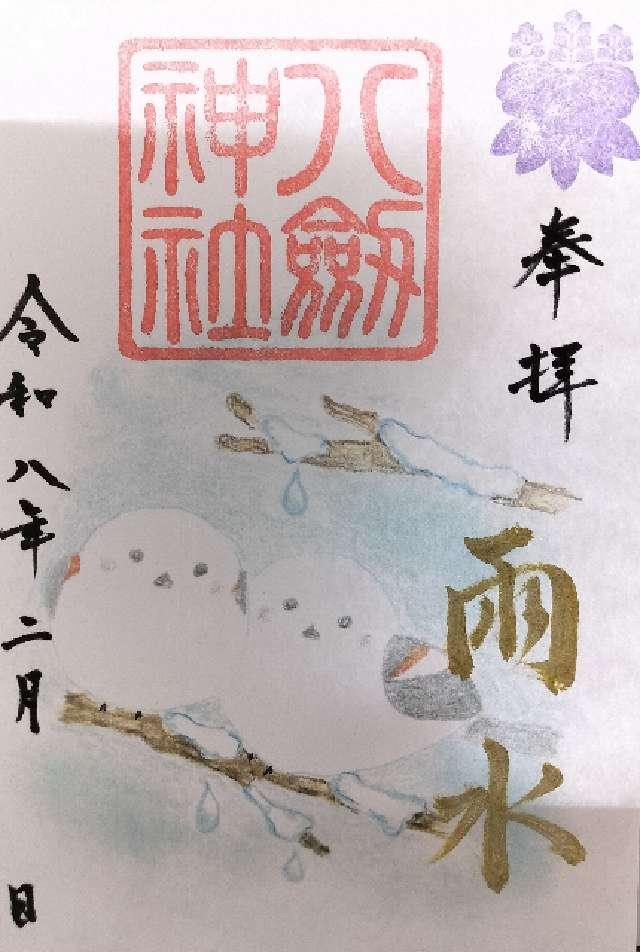 奉拝
八劔神社
雨水
令和八年二月 日